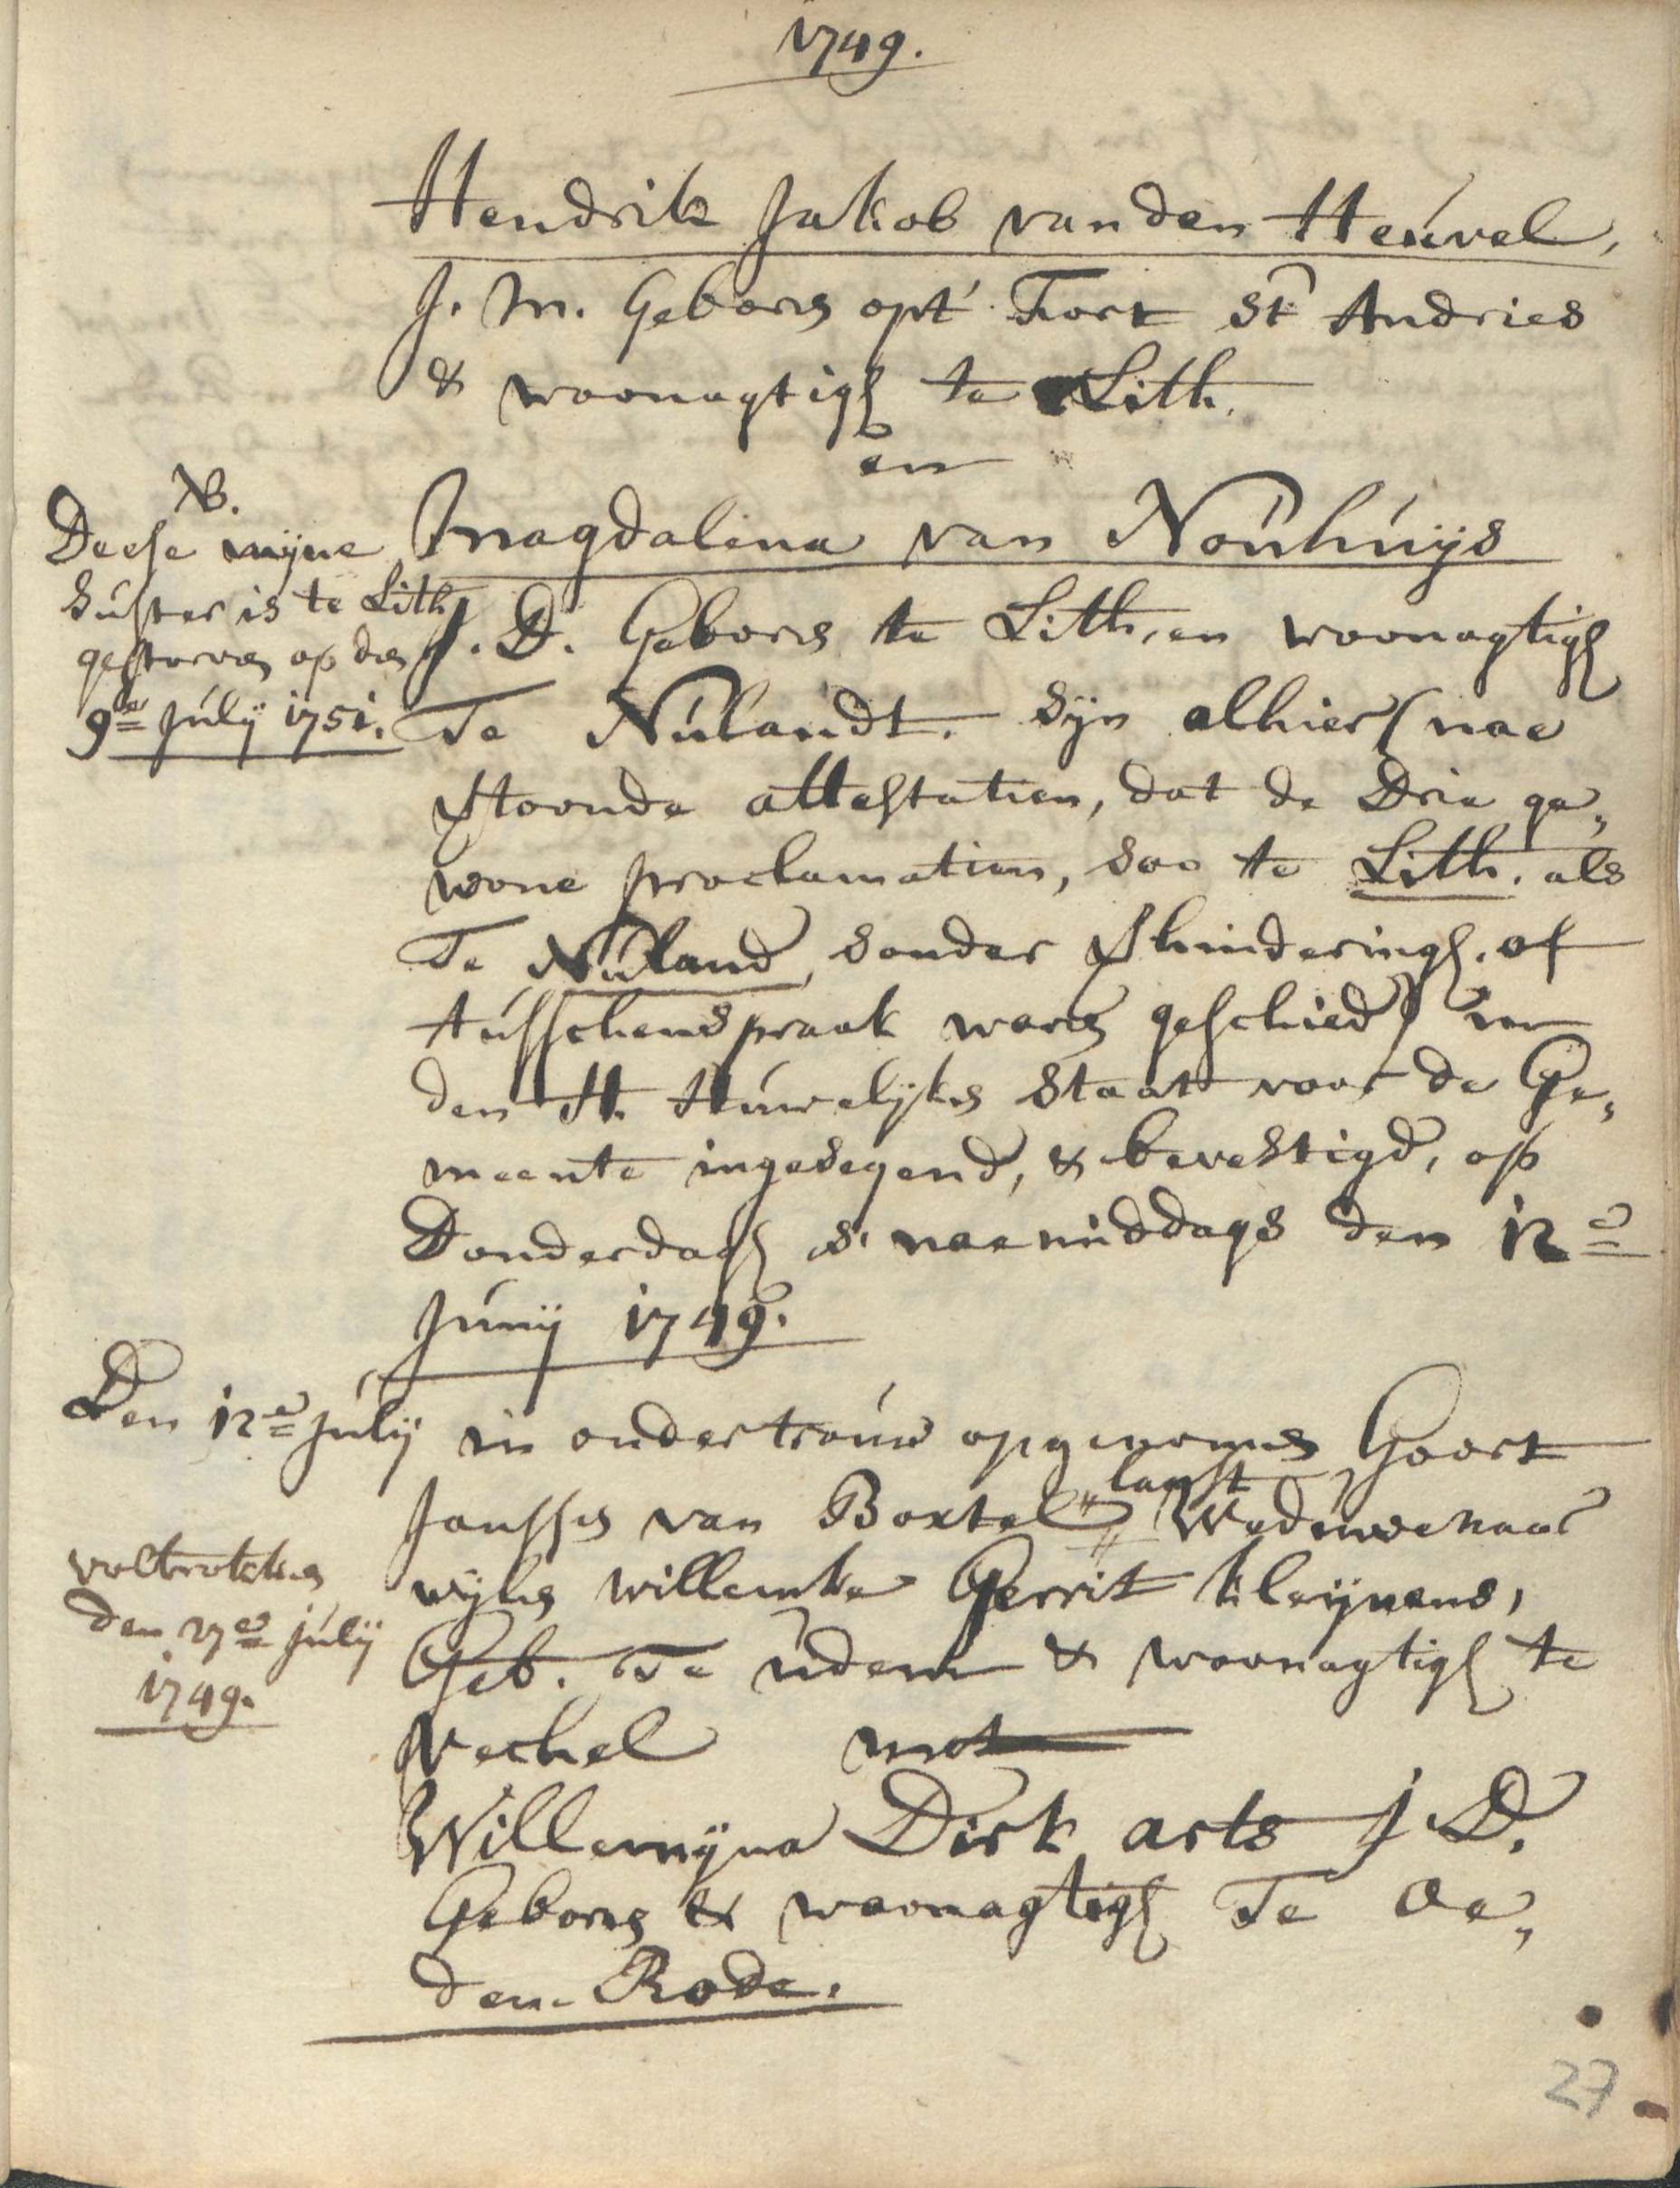 1749.
Hendrik Jakob van den Heúvel,
J. M. Geboren opt' Fort St Andries
& woonagtig te Lith.
en
NB.
Deese mijne
súster is te Lith
gestorven op den
9de Júlij 1751.
Magdalena van Noúhúijs
J. D. Geboren te Lith, en woonagtig
Te Núlandt. Sijn alhier (nae
vertoonde attestatien, dat de Drie ge„
wone proclamatien, soo te Lith. als
Te Núland, sonder verhindering. of
tússchenspraak waren geschied) in
den H. Húwelijken Staat voor de Ge„
meente ingesegend, & bevestigd, op
Donderdag s' naemiddags den 12e
Júnij 1749.
Den 12e Júlij in ondertroúw opgenomen Goort
Jansse van Boxtel laast Wedúwenaar
wijlen Willemke Gerrit Kleijnens,
Geb. Te údem & woonagtig te
Vechel met
Willemijna Dirk arts J D.
Geboren & woonagtig Te Oe„
den-Rode.
voltrokken
den 27e Júlij
1749.
27